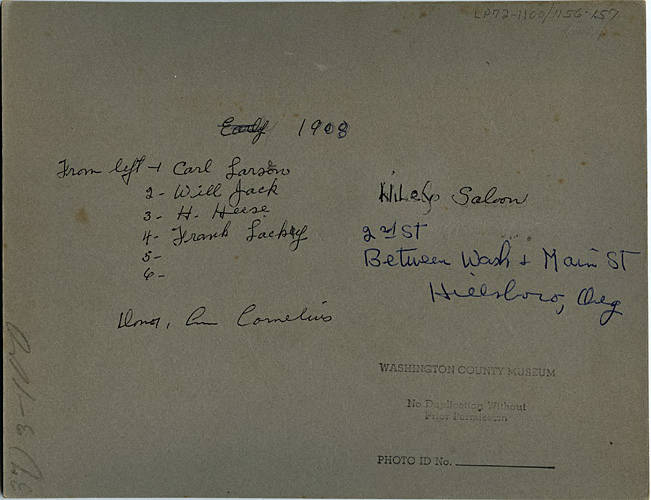 LP72-1100/756-757
Early 1908
From left + Carl Larson
2- Will Jack
3- H. Heise
4- Frank Lackey
5-
6-
Saloon
2nd ST
Between Wash + Main ST
Hillsboro, Oreg
Donor, Cornelius
WASHINGTON COUNTY MUSEUM
No Duplication Without
Prior Permission
PHOTO ID No.